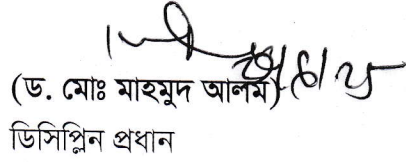 (ড. মোঃ মাহমুদ আলম)
ডিসিপ্লিন প্রধান